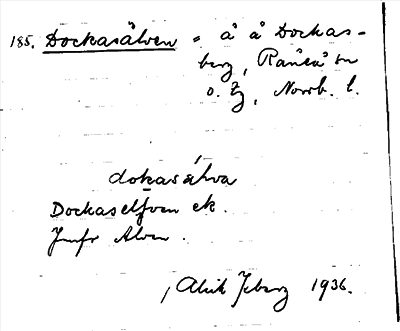 185. Dockasälven = å å Dockas-
berg, Råneå sn
o. tg, Norrb. l.
dokasälva
Dockaselfven ek.
Jmfr Alven.
Alrik Isberg 1936.